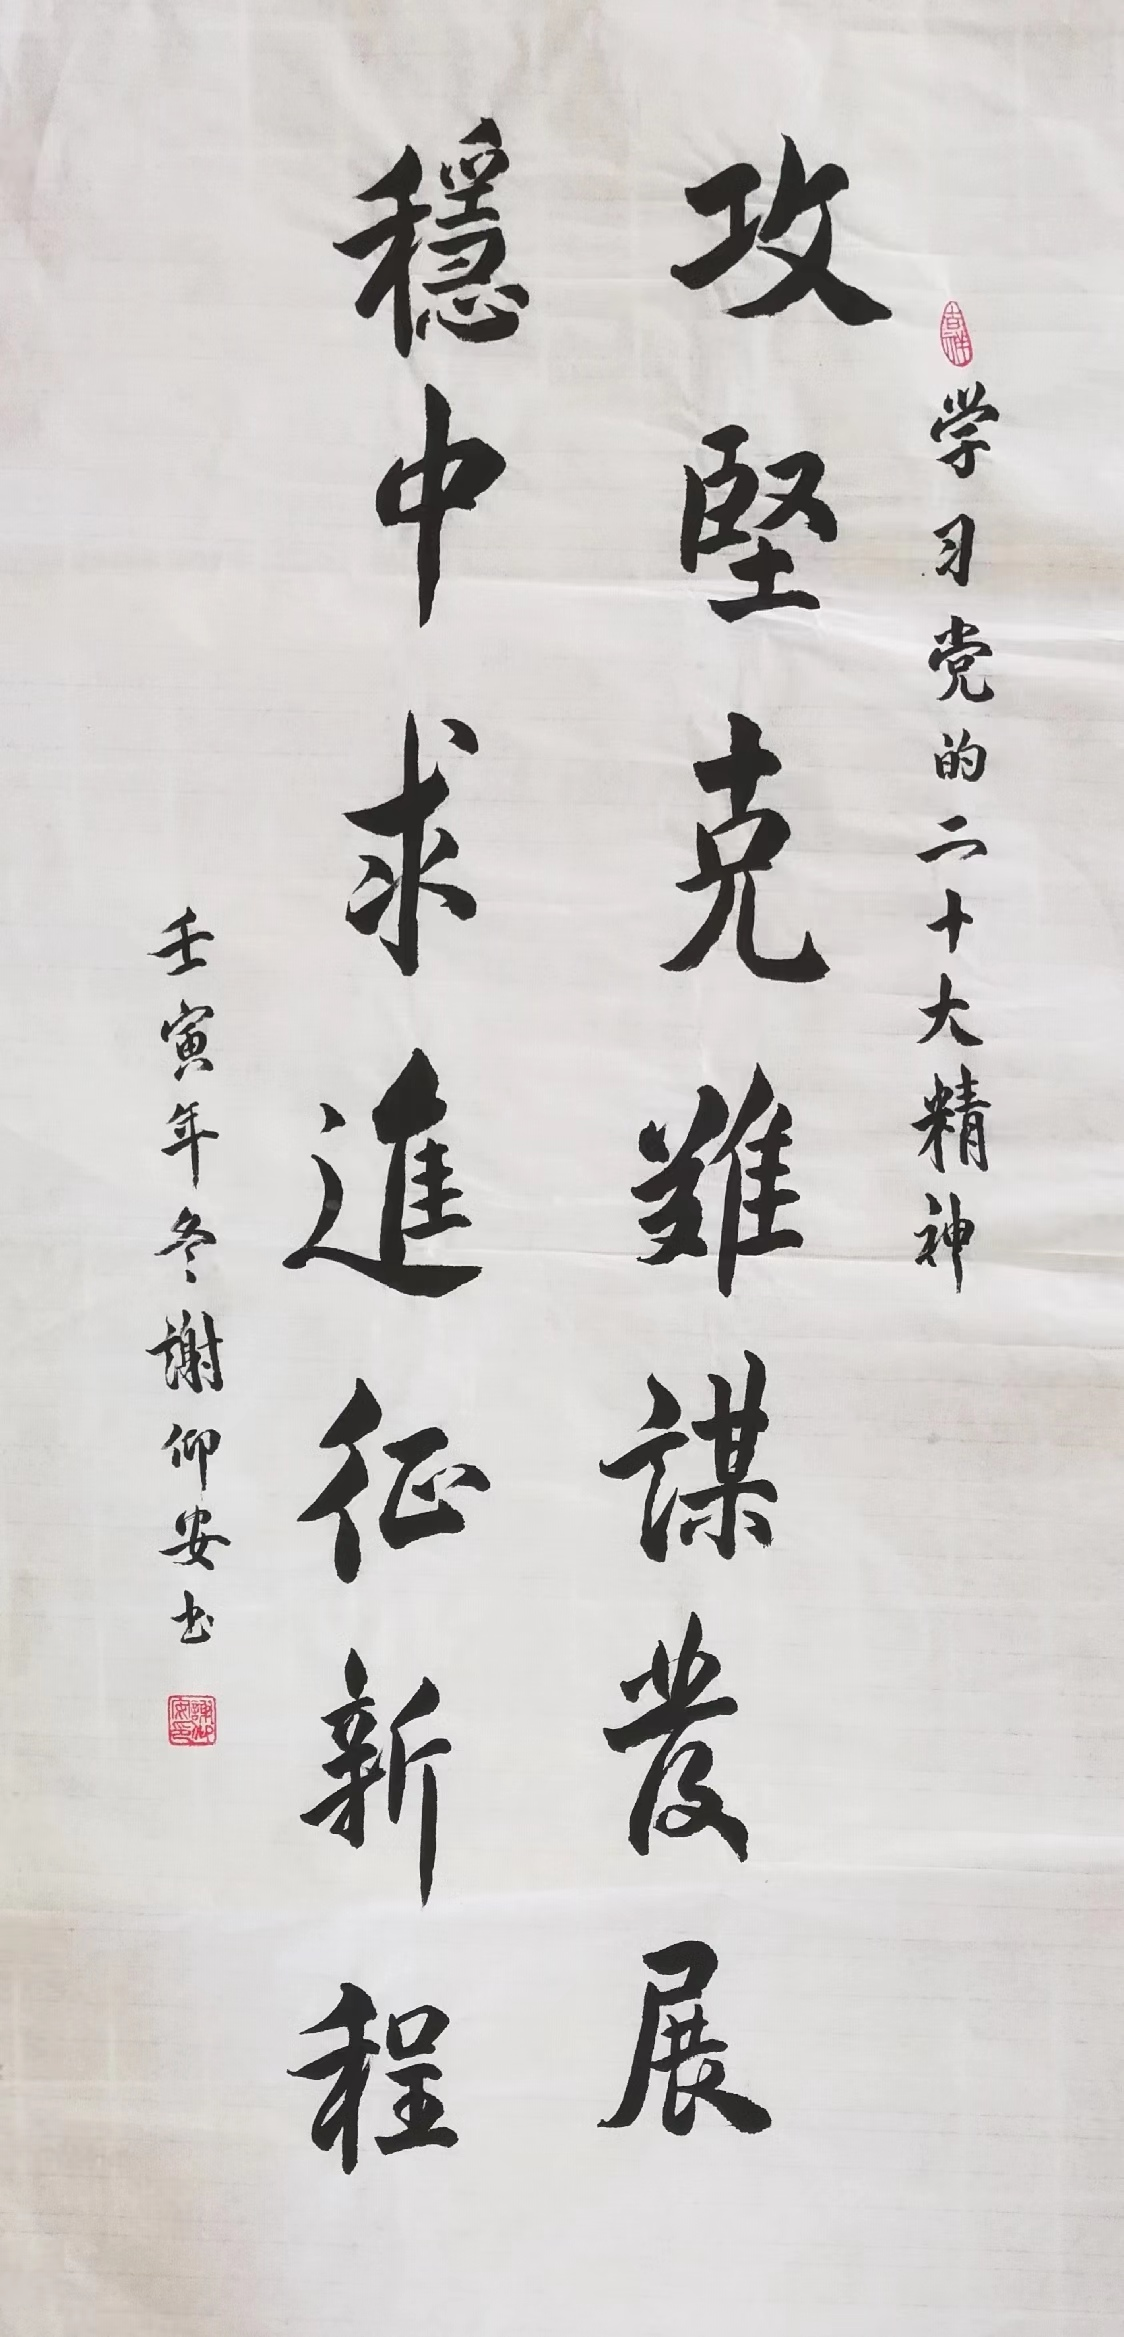 学习党的二十大精神
攻堅克難謀發展
穩中求進征新程
壬寅年冬謝仰安书
謝仰安印